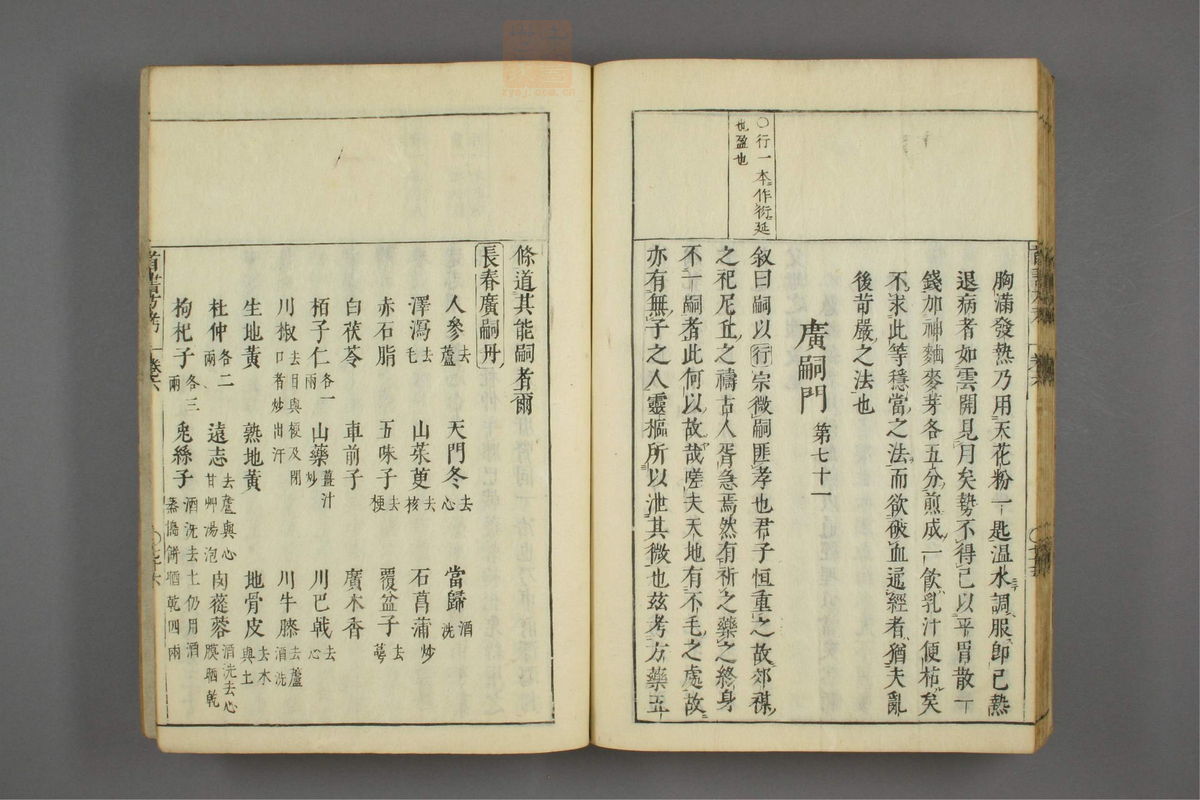 ○行一本作衍延
也盈也
胸滿發熱乃用天花粉一匙温水調服即已熱
退病者如雲開見月矣勢不得已以平胃散一
錢加神麯麥芽各五分煎成一飲乳汁便枯矣
不求此等穩當之法而欲破血逼經者猶夫亂
後苛嚴之法也
廣嗣門 第七十一
叙曰嗣以行宗微嗣匪孝也君子恒重之故郊禖
之祀尼丘之禱古人胥急焉然有祈之藥之終身
不一嗣者此何以故哉嗟夫天地有不毛之處故
亦有無子之人靈樞所以泄其微也茲考方藥五
條道其能嗣者爾
長春廣嗣丹
人參去蘆 天門冬去心 當歸酒洗
澤瀉去毛 山茱萸去核 石菖蒲炒
赤石脂 五味子去梗 覆盆子去萼
白茯苓 車前子 廣木香
栢子仁各一兩 山藥薑汁炒 川巴戟去心
川椒去目與梗及閉口者炒出汗 川牛膝去蘆酒洗
生地黃 熟地黃 地骨皮去木與土
杜仲各二兩 遠志去蘆與心甘艸湯泡 肉蓯蓉酒洗去心膜晒乾
枸杞子各三兩 兎絲子酒洗去土仍用酒蒸搗餅晒乾四兩
首書方考 卷六